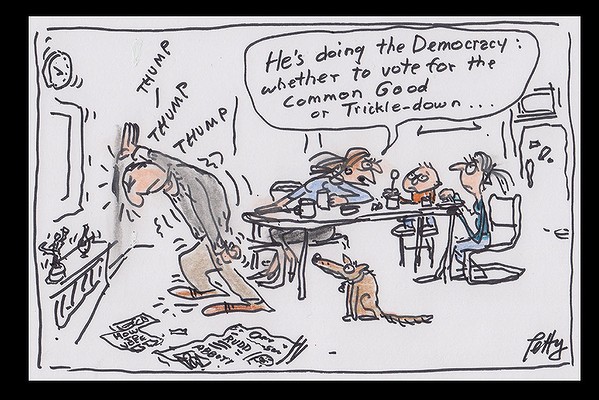 THUMP
THUMP
THUMP
He's doing the Democracy:
whether to vote for the
Common Good
or Trickle-down...
HOW
VOTE
RUDD
ABBOTT
Petty